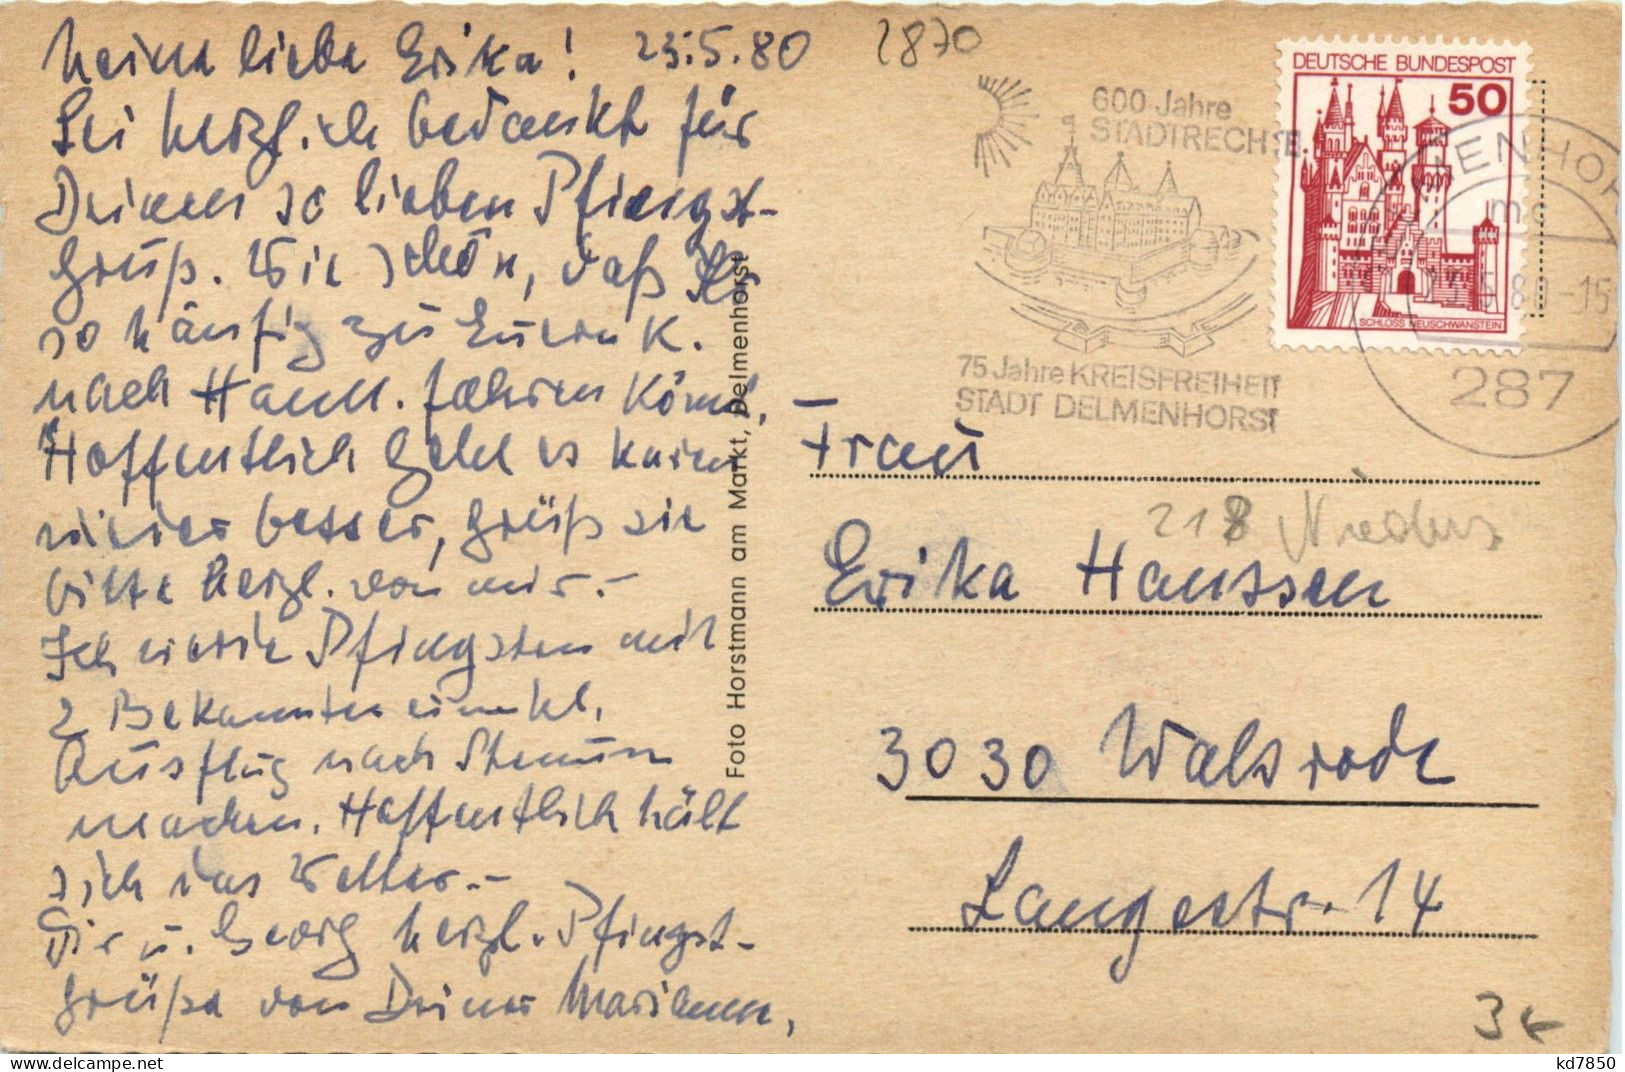 Meine liebe Erika! 23.5.80
Sei herzlich bedankt für
Deinen so lieben Pfingst-
gruß. Wie schön, daß Ihr
so häufig zu Euren K.
nach Hann. fahren könnt,
Hoffentlich geht es
wieder besser, grüß sie
bitte herzl. von mir.-
Ich werde Pfingsten mit
2 Bekannten einen kl.
Ausflug nach Stenum
machen. Hoffentlich hält
sich das Wetter.-
Dir u. Georg herzl. Pfingst-
grüße von Deiner Mariann,
Foto Horstmann am Markt, Delmenhorst
2870
600 Jahre
STADTRECHTE
75 Jahre KREISFREIHEIT
STADT DELMENHORST
DEUTSCHE BUNDESPOST
50
SCHLOSS NEUSCHWANSTEIN
MENHOR
mc
-15
287
Frau
218 Nieders
Erika Hanssen
3030 Walsrode
Langestr. 14
3€
delcampe.net
kd7850